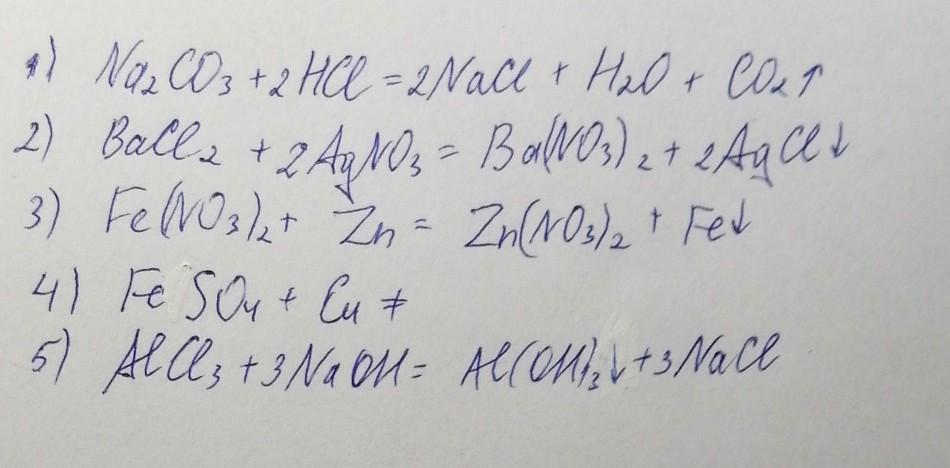 1) Na₂CO₃ + 2HCl = 2NaCl + H₂O + CO₂↑
2) BaCl₂ + 2AgNO₃ = Ba(NO₃)₂ + 2AgCl↓
3) Fe(NO₃)₂ + Zn = Zn(NO₃)₂ + Fe↓
4) FeSO₄ + Cu ≠
5) AlCl₃ + 3NaOH = Al(OH)₃↓ + 3NaCl